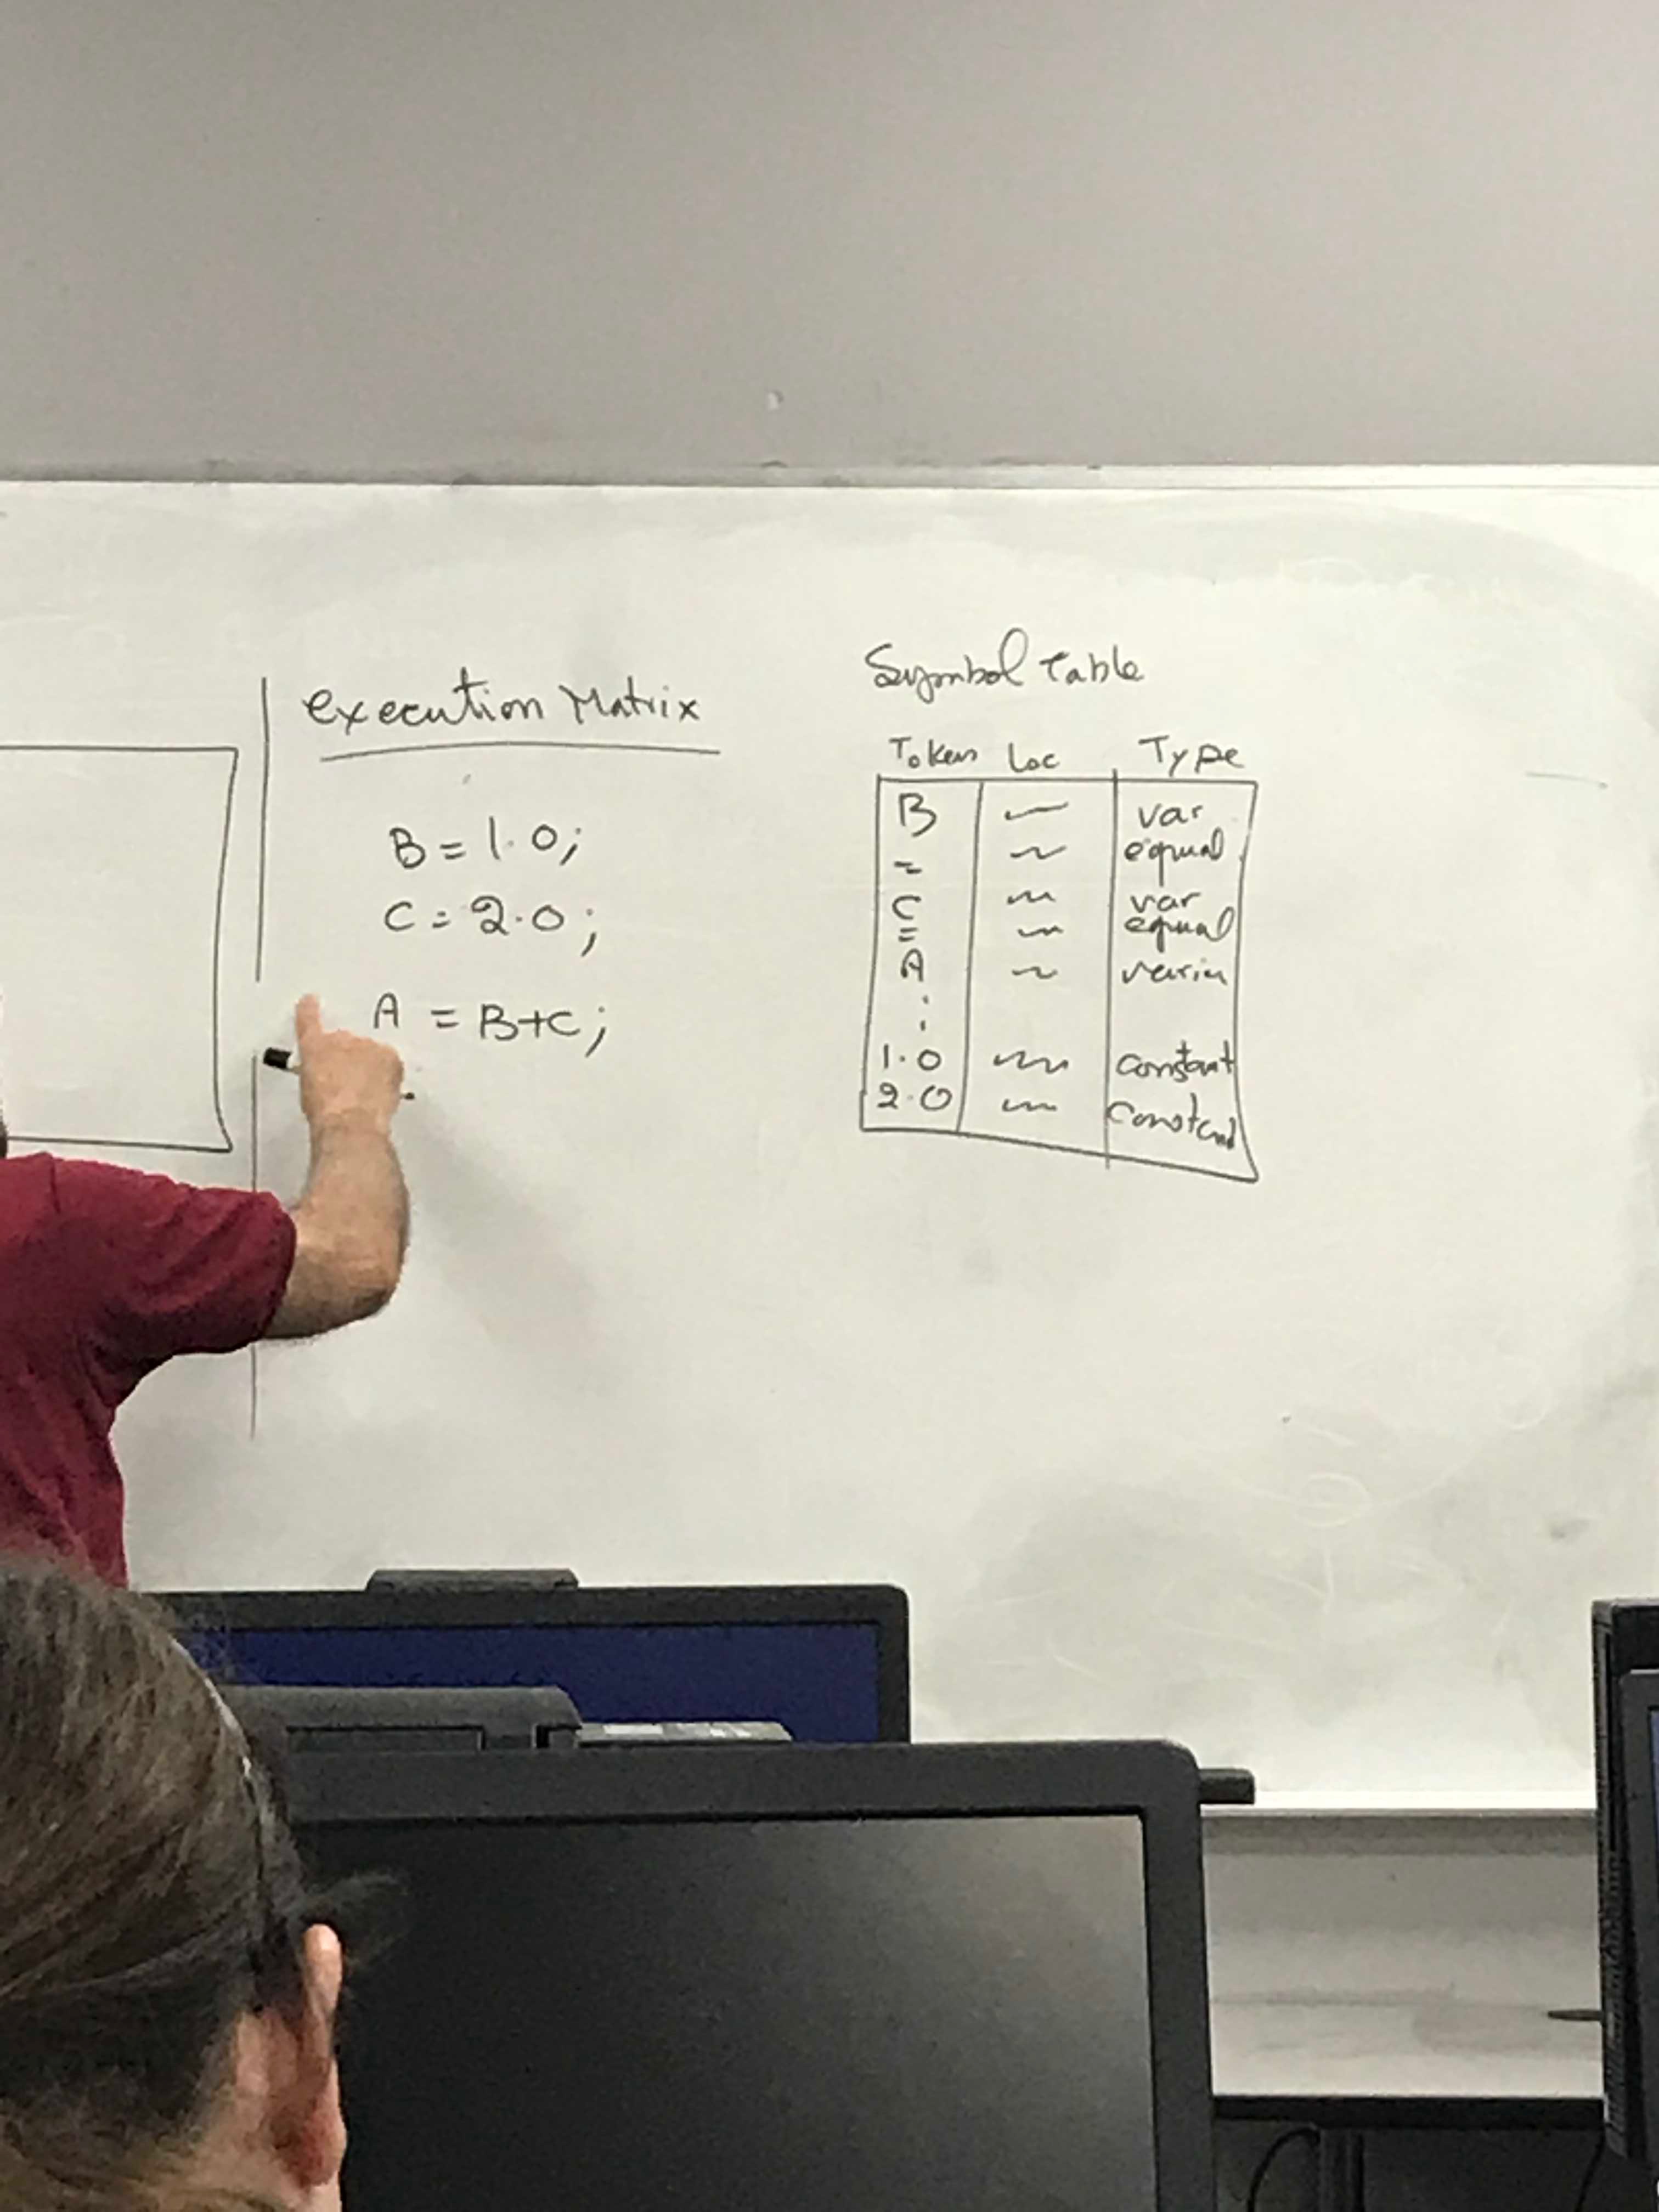 execution Matrix
B = 1.0;
C = 2.0;
A = B+C;
Symbol Table
Token Loc Type
B var
= equal
C var
= equal
A varia
:
1.0 constant
2.0 constant